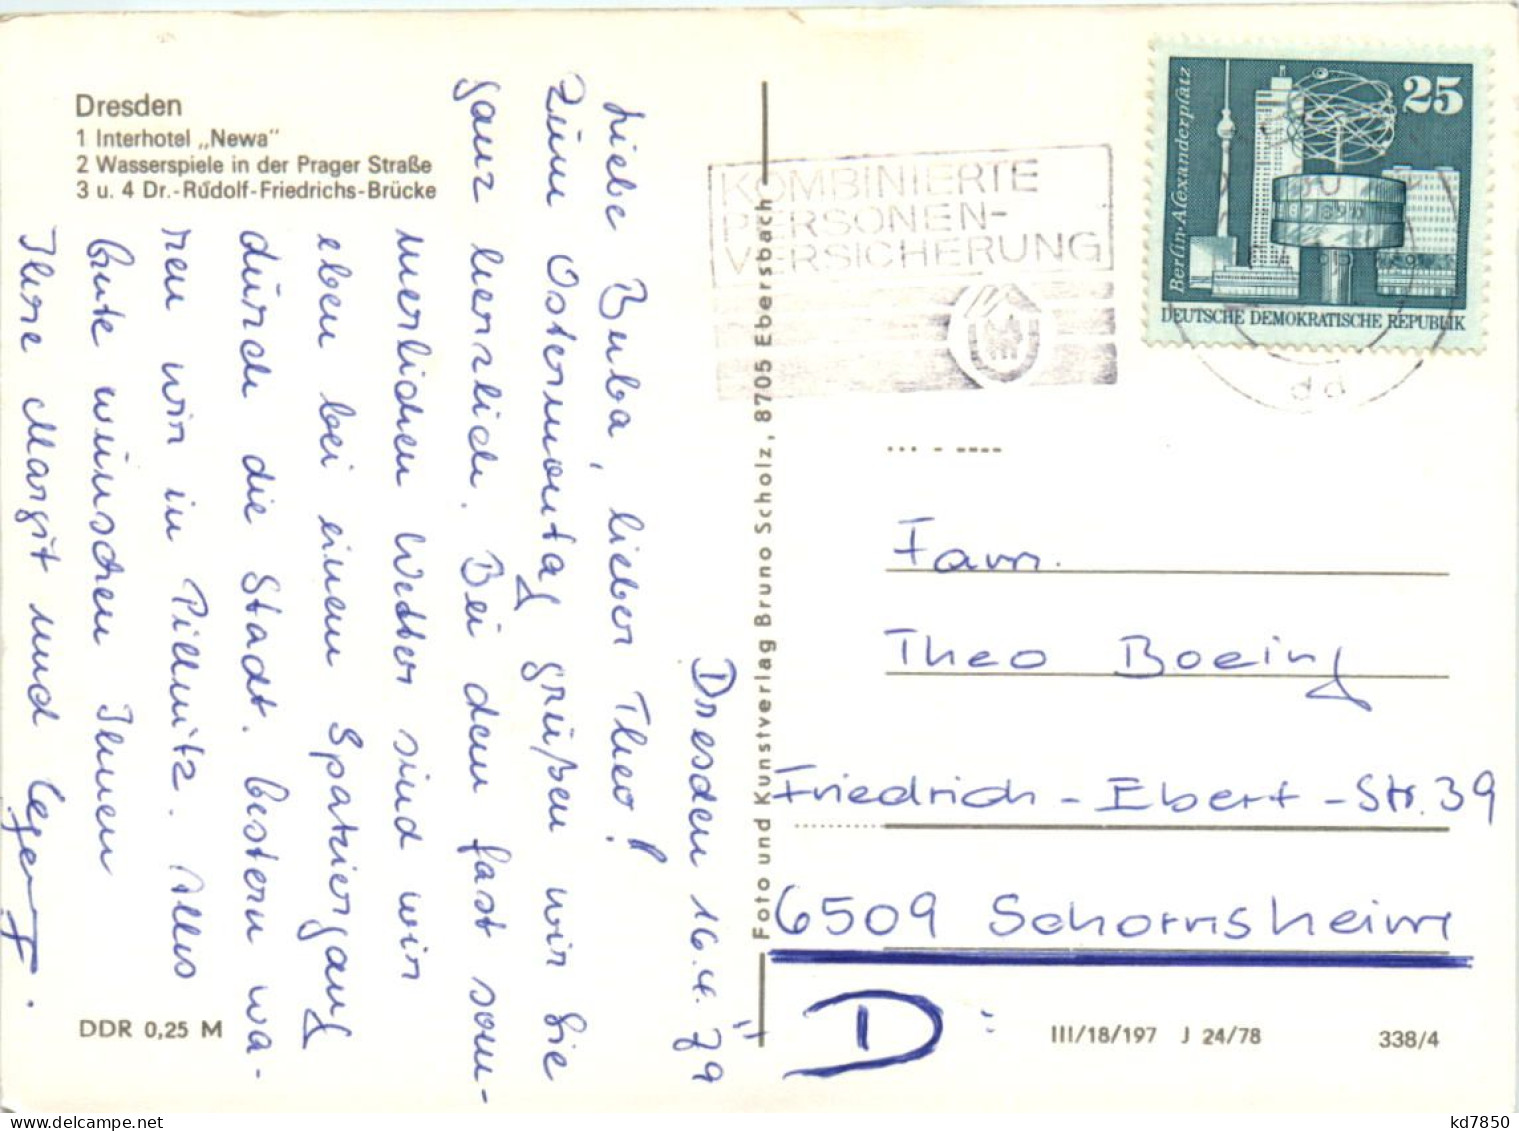 Dresden
1 Interhotel „Newa"
2 Wasserspiele in der Prager Straße
3 u. 4 Dr.-Rudolf-Friedrichs-Brücke
Dresden 16.4.79
Liebe Buba, lieber Theo!
Zum Ostermontag grüßen wir Sie
ganz herzlich. Bei dem fast som-
merlichen Wetter sind wir
eben bei einem Spaziergang
durch die Stadt. Gestern wa-
ren wir in Pillnitz. Alles
Gute wünschen Ihnen
Ihre Margit und
DDR 0,25 M
Foto und Kunstverlag Bruno Scholz, 8705 Ebersbach
KOMBINIERTE
PERSONEN-
VERSICHERUNG
Berlin-Alexanderplatz
25
DEUTSCHE DEMOKRATISCHE REPUBLIK
Fam.
Theo Boeing
Friedrich-Ebert-Str. 39
6509 Schornsheim
D
III/18/197 J 24/78
338/4
kd7850